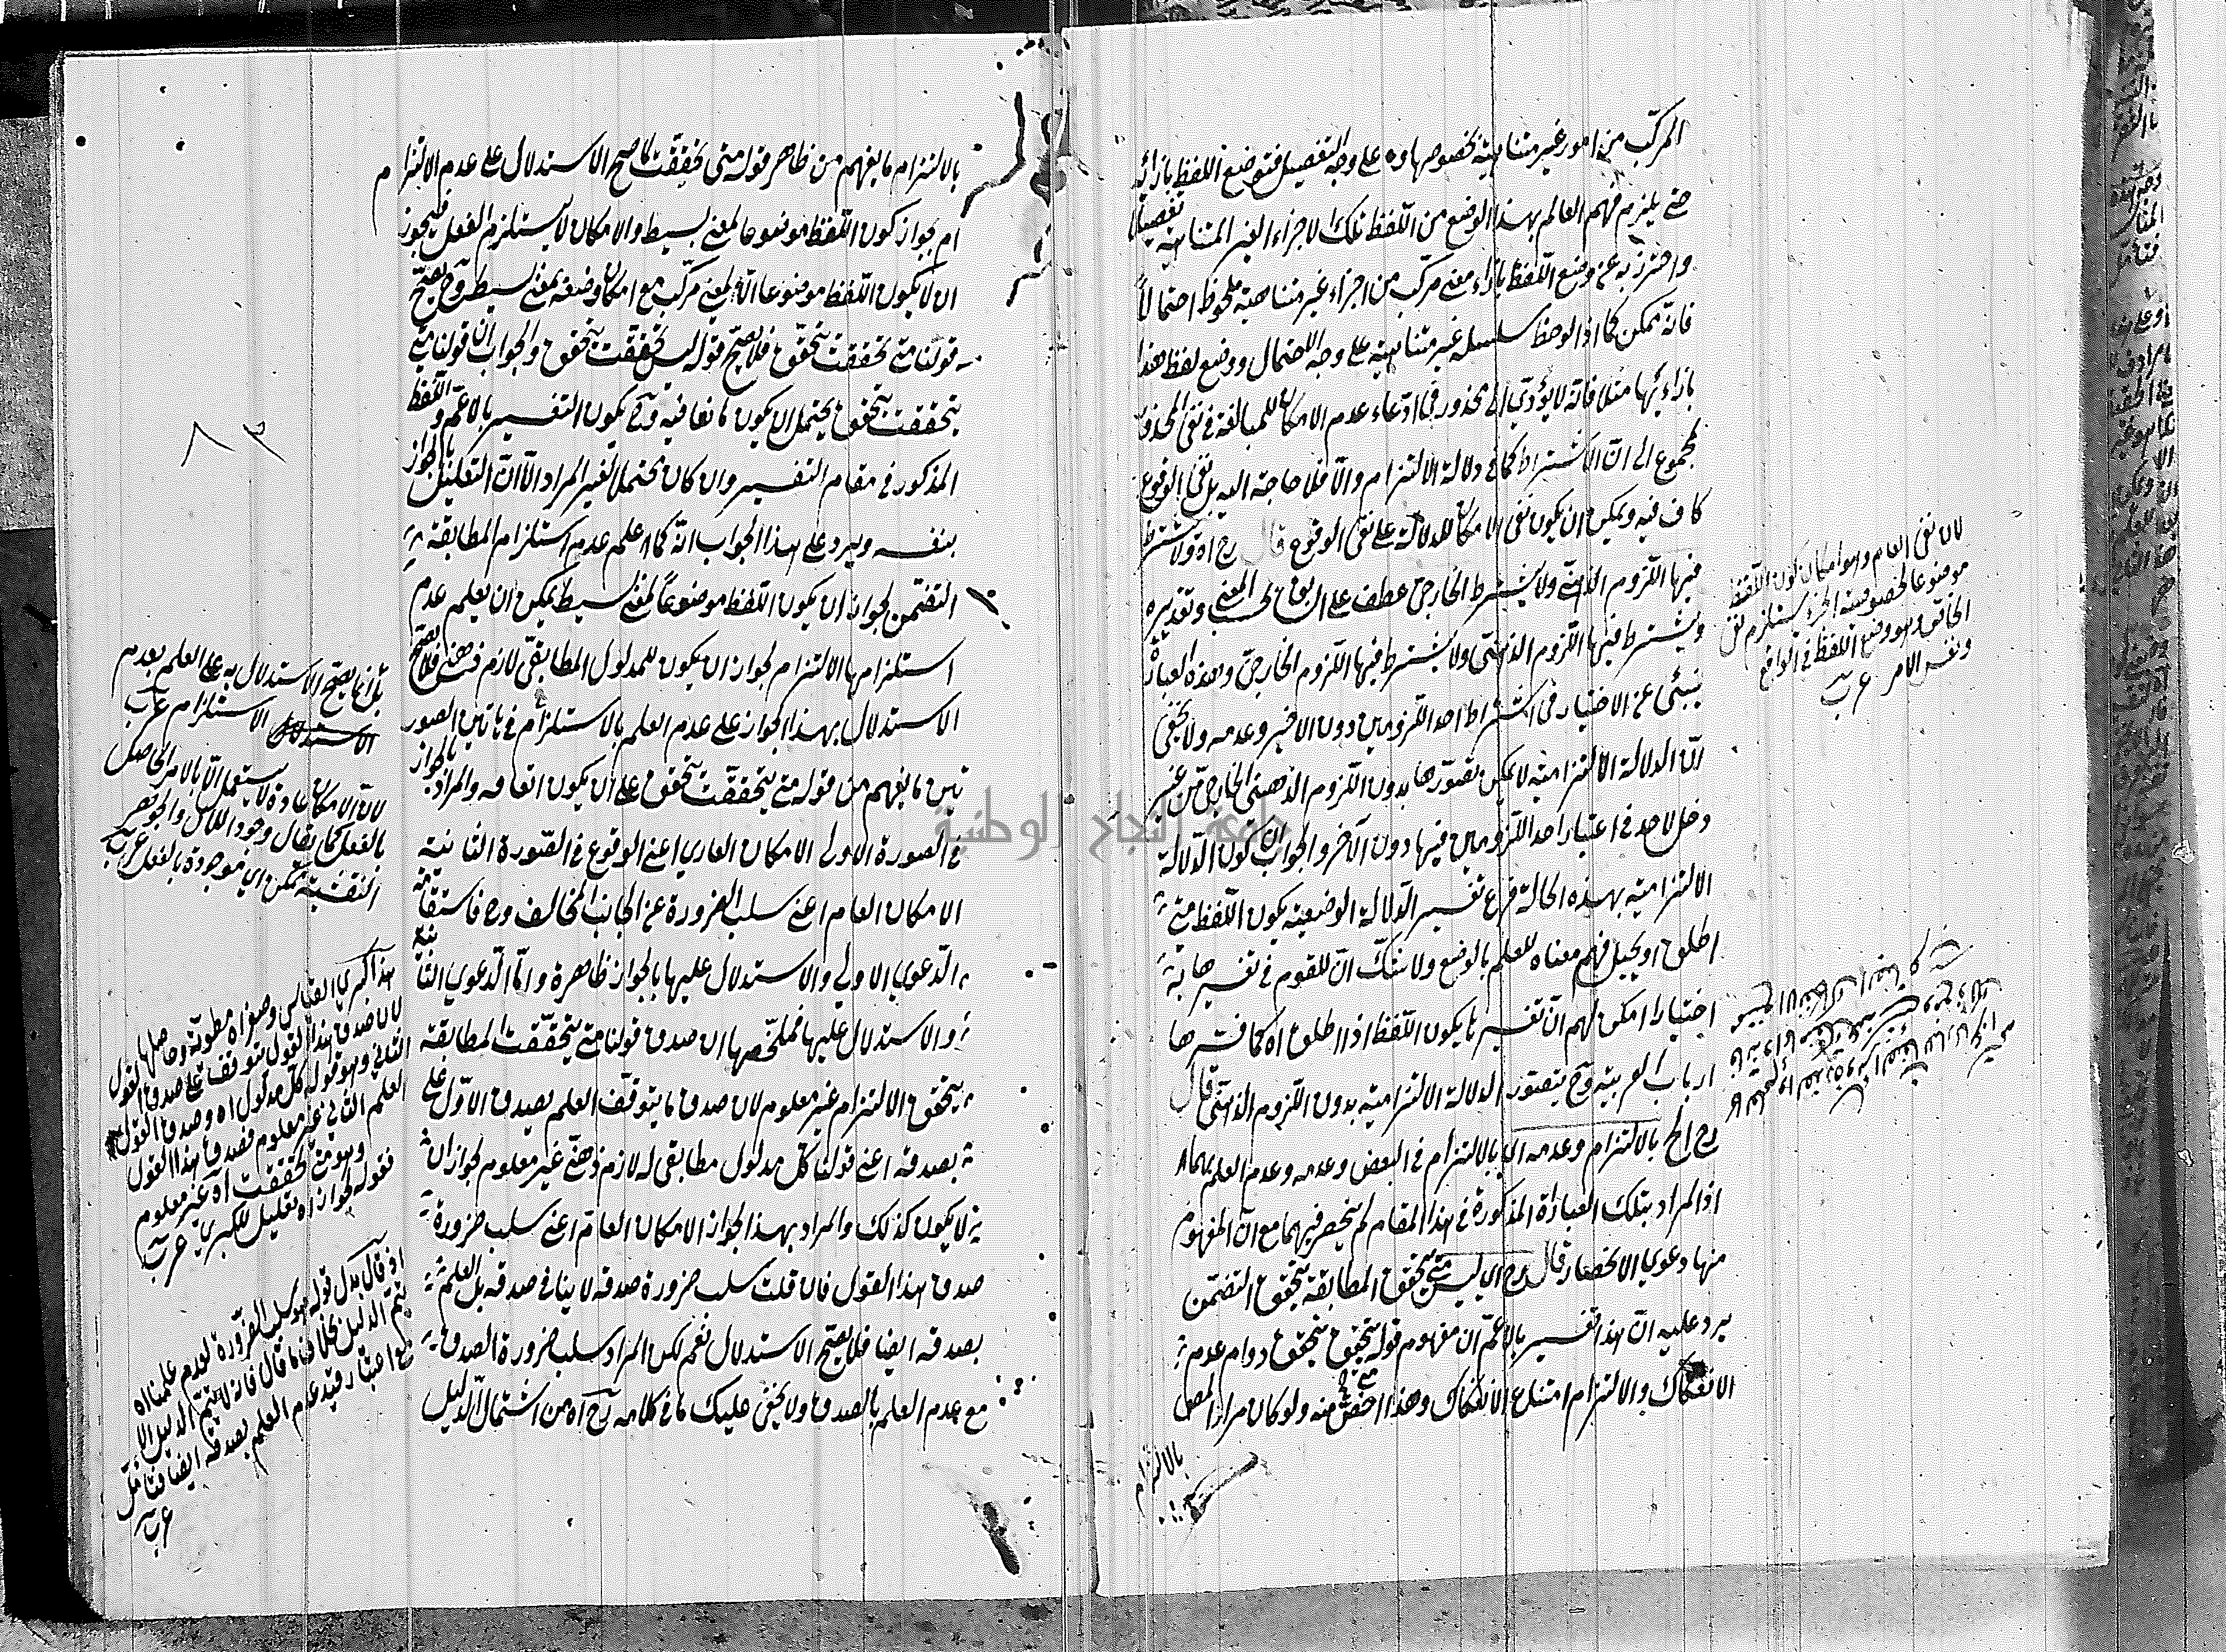 المركّب من امور غير متناهية بخصوصها وه على وجه التفصيل فتوضيع اللفظ بازائه
حتى يلزم فهم العالم بهذا الوضع من اللفظ تلك الاجزاء الغير المتناهية تفصيلا
واحترز به عن وضع اللفظ بازاء معنى مركّب من اجزاء غير متناهية ملحوظ اجمالا
فانه ممكن كما اذا لوحظ سلسلة غير متناهية على وجه الاجمال ووضع لفظ هذا
بازائها مثلا فانه لا يؤدّي الى محذور فيا ادّعاء عدم الامكان للمبالغة في نفي
المجموع الى انّ الاشتراط كما في دلالة الالتزام والّا فلا حاجة اليه بل نفي الوقوع
كاف فيه ويمكن ان يكون نفى الامكان للدلالة على نفى الوقوع قال رح اه ولا يشترط
فيها اللزوم الذهنى ولا يشترط الخارجى عطف على السابق بحسب المعنى وتقديره
ويشترط فيها اللزوم الذهنى ولا يشترط فيها اللزوم الخارجى وهذه العبارة
ينبئ عن الاختيار في اشتراط احد اللزومين دون الاخير وعدمه ولا يخفى
انّ الدلالة الالتزامية لا يمكن تصوّرها بدون اللزوم الذهنى الخارجى من غير
دخل لاحد في اعتبار احد اللزومين فيها دون الآخر والجواب ان كون الدّلالة
الالتزامية بهذه الحالة فرع تفسير الدّلالة الوضعية بكون اللفظ متى
اطلق او تخيل فهم معناه للعلم بالوضع ولا شكّ انّ للقوم في تفسيرها
اختيارا امكن لهم انّ تفسير بكون اللفظ اذا اطلق اه كما فسّرها
ارباب العربية وح يتصوّر الدلالة الالتزامية بدون اللزوم الذهنى قال
رح الخ بالالتزام وعدمه اى بالالتزام في البعض وعدمه وعدم العلم بهما
اذ المراد بتلك العبارة المذكورة في هذا المقام لم ينحصر فيهما مع انّ المفهوم
منها دعوى الانحصار قال رح اى ليس متى تحقق المطابقة تحقق التضمن
يرد عليه انّ هذا تفسير بالاعمّ ان مفهوم قوله تحقق تحقق دوام عدم
الانفكاك والالتزام امتناع الانفكاك وهذا اخصّ منه ولو كان مراد المص
بالالتزام
لان نفى العام وهو امكان كون اللفظ
موضوعا لخصوصية الجزء يستلزم نفى
الخاص وهو وضع اللفظ في الواقع
ونفس الامر عرب
بالالتزام ما يفهم من ظاهر قوله متى تحققت لما صح الاستدلال على عدم الالتزام
ام بجواز كون اللفظ موضوعا لمعنى بسيط والامكان لا يستلزم الفعل فيجوز
ان لا يكون اللفظ موضوعا الّا لمعنى مركّب مع امكان وضعه لمعنى بسيط وح يصحّ
قولنا متى تحققت تحقق فلا يصحّ قوله ليس تحققت تحقق والجواب انّ قولنا متى
تحققت تحقق يحتمل ان يكون اتفاقية وح يكون التفسير بالاعمّ واللفظ
المذكور في مقام التفسير وان كان محتملا لغير المراد الّا انّ التعليل بالجواز
بنفسه ويرد على هذا الجواب انّه كما اعلم عدم استلزام المطابقة
التضمن لجواز ان يكون اللفظ موضوعاً لمعنى بسيط يمكن ان نعلم عدم
استلزامها الالتزام لجواز ان يكون للمدلول المطابقى لازم ذهنى فلا يصحّ
الاستدلال بهذا الجواز على عدم العلم بالاستلزام في هاتين الصور
تين ما يفهم من قوله متى تحققت تحقق على ان يكون اتفاقيه والمراد بالجواز
في الصورة الاولى الامكان العادى اعنى الوقوع في الصّورة الثانية
الامكان العام اعنى سلب الضرورة عن الجانب المخالف وح فاستقامة
الدّعوى الاولى والاستدلال عليها بالجواز ظاهرة وامّا الدّعوى الثانية
والاستدلال عليها فملخّصها ان صدق قولنا متى تحقّقت المطابقة
تحقق الالتزام غير معلوم لان صدق ما يتوقّف العلم بصدق الاوّل على
بصدقه اعنى قولنا كلّ مدلول مطابقى له لازم ذهنى غير معلوم لجواز ان
لا يكون كذلك والمراد بهذا الجواز الامكان العام اعنى سلب ضرورة
صدق هذا القول فان قلت سلب ضرورة صدقه لا ينافى صدقه بل العلم
بصدقه ايضا فلا يصحّ الاستدلال نعم لكن المراد سلب ضرورة الصدق
مع عدم العلم بالصدق ولا يخفى عليك ما في كلامه رح اه من اشتمال الدليل
٨٣
بل انما يصحّ الاستدلال به على العلم بعدم
الاستلزام عرب
لانّ الامكان عادة لا يستعمل الّا بالامر الحاصل
بالفعل كما يقال وجود الناس والجوهر
النفيسة ممكن اي موجودة بالفعل عرب
هذا كبرى القياس وصغراه مطوية وحاصلها القول
لان صدق هذا القول يتوقف على صدق القول
الثانى وهو قوله كل مدلول اه وصدق القول
العلم الثانى غير معلوم فصدق هذا القول
وهو متى تحققت اه غير معلوم
فقوله لجواز اه تعليل للكبرى عرب
اذ قال بدل قوله هو سلب الضرورة لعدم علمنا اه
يتمّ الدليل بخلاف ما قال فانه لا يتم الدليل الا
مع اعتبار قيد عدم العلم بصدقه ايضا فتأمّل
عرب
جامعة النجاح الوطنية